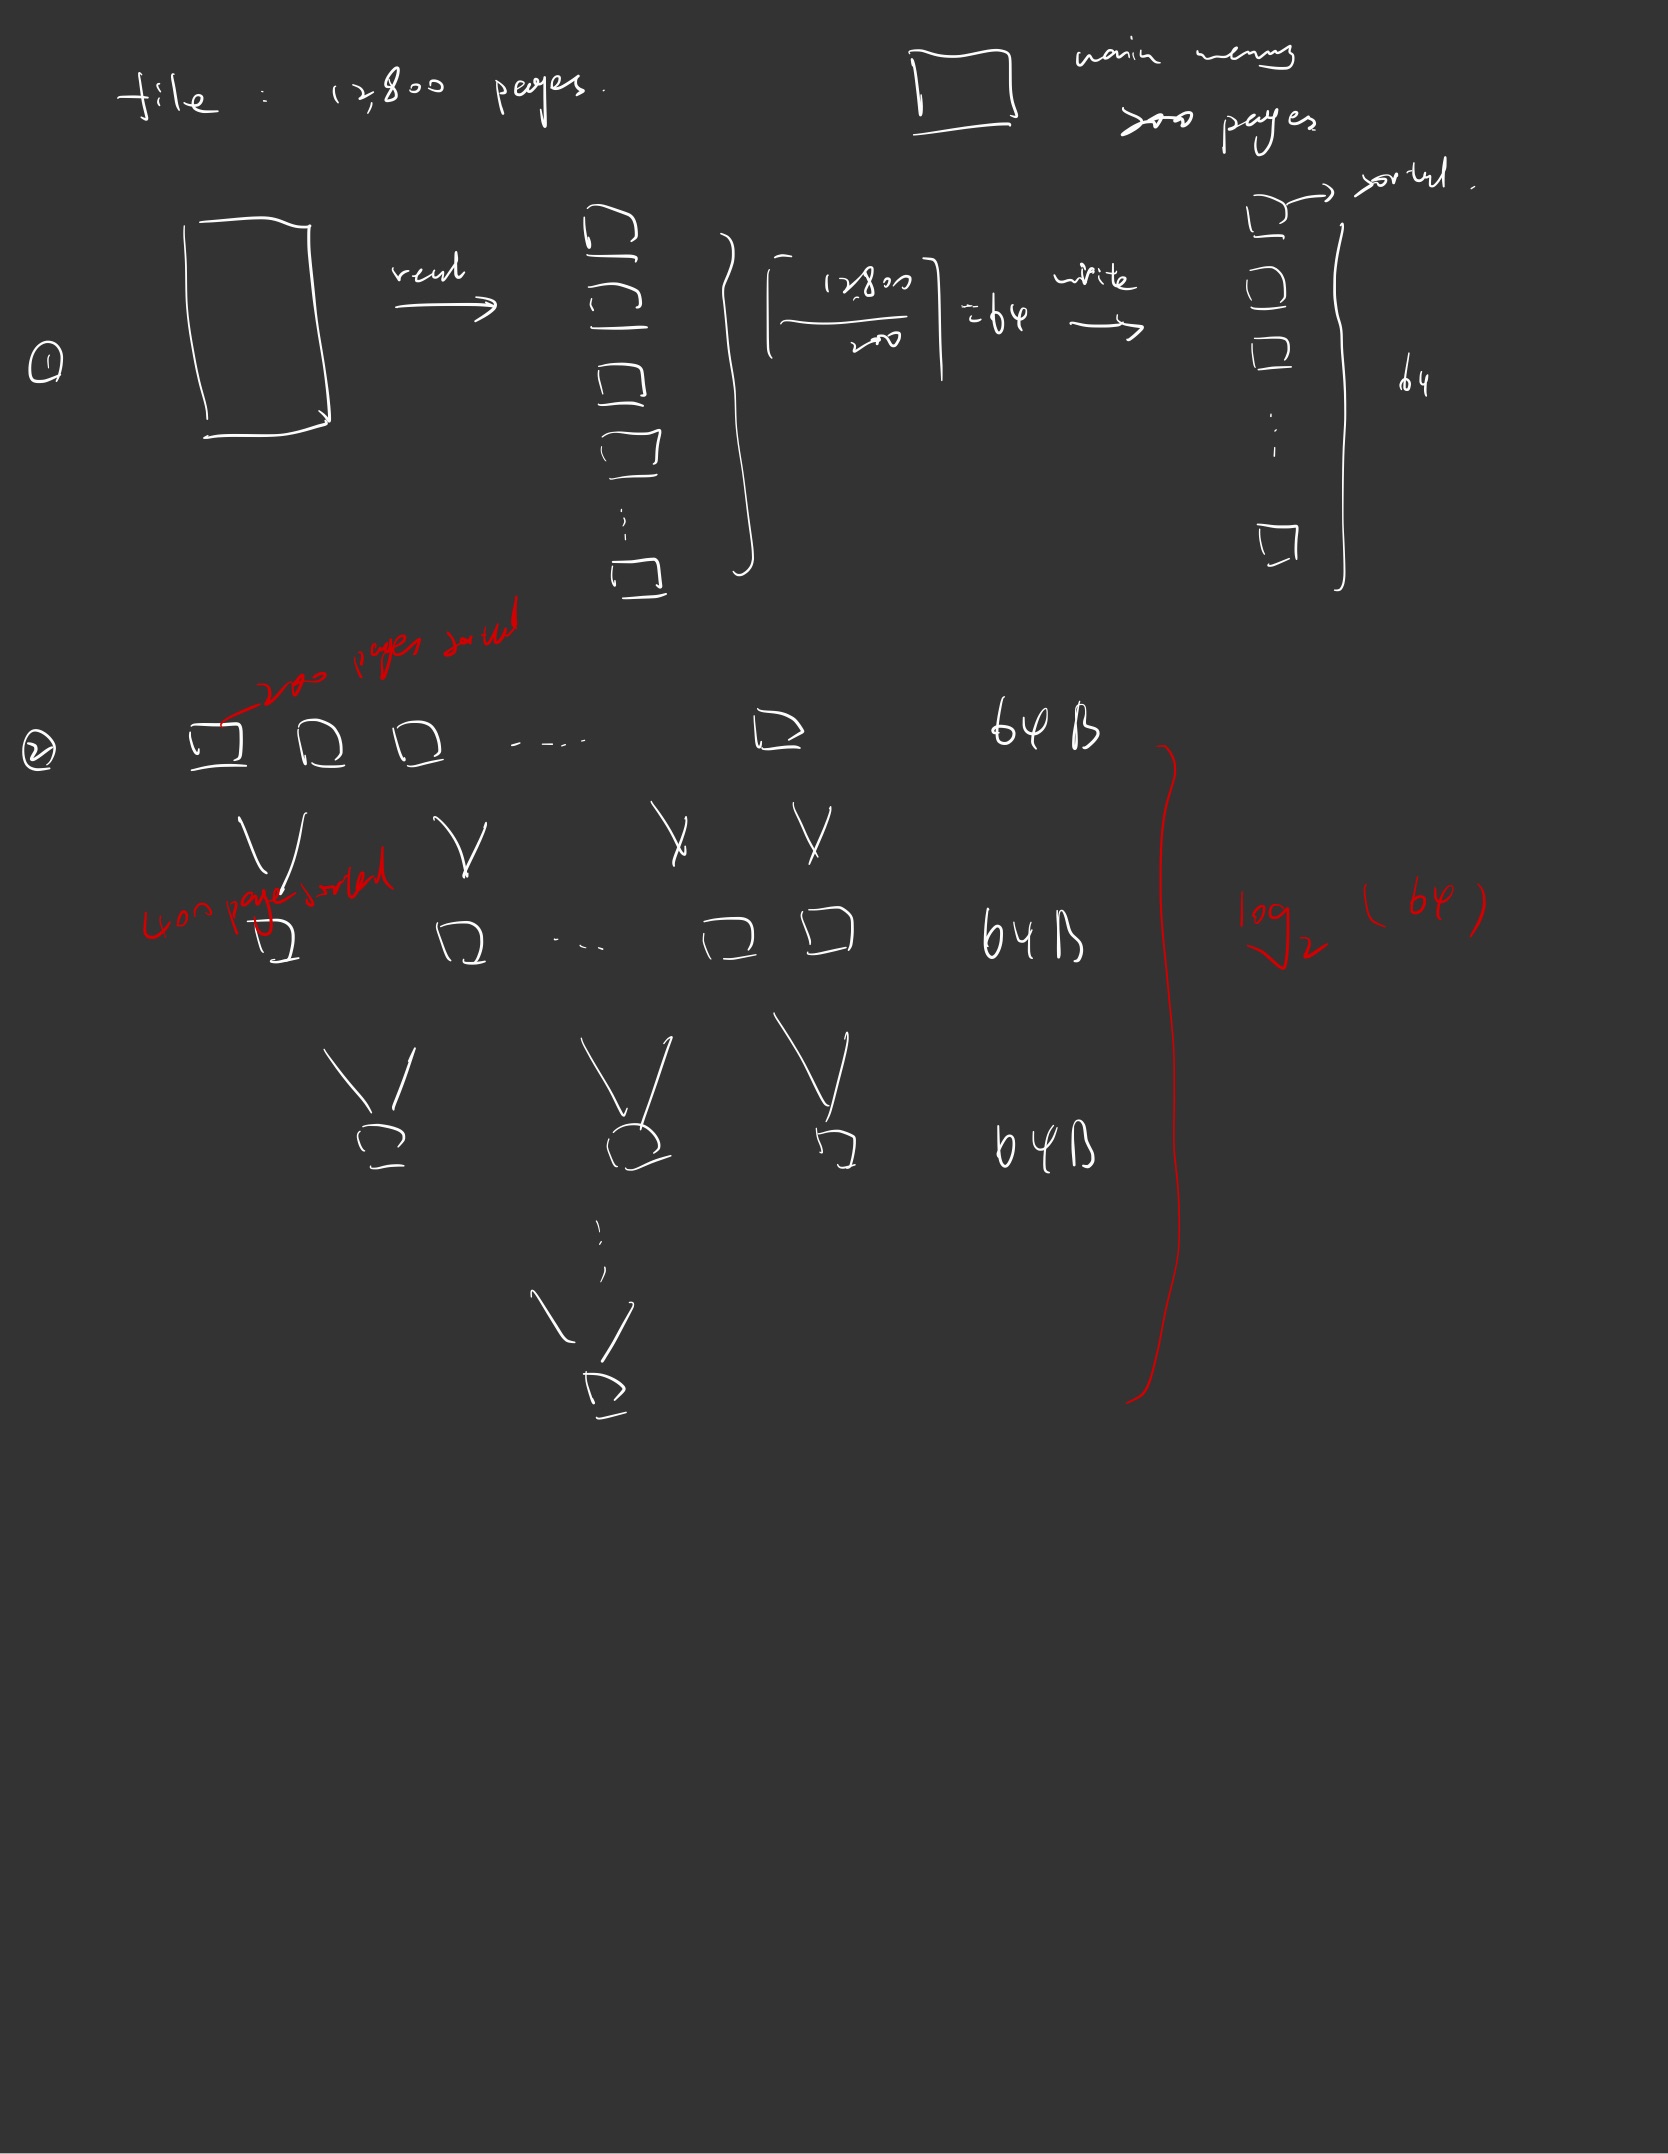 file : 12,800 pages.
main memory
200 pages
sorted.
①
read
⌈12800 / 200⌉ = 64
write
64
200 pages sorted
②
64B
400 page sorted
64B
log₂ (64)
64B